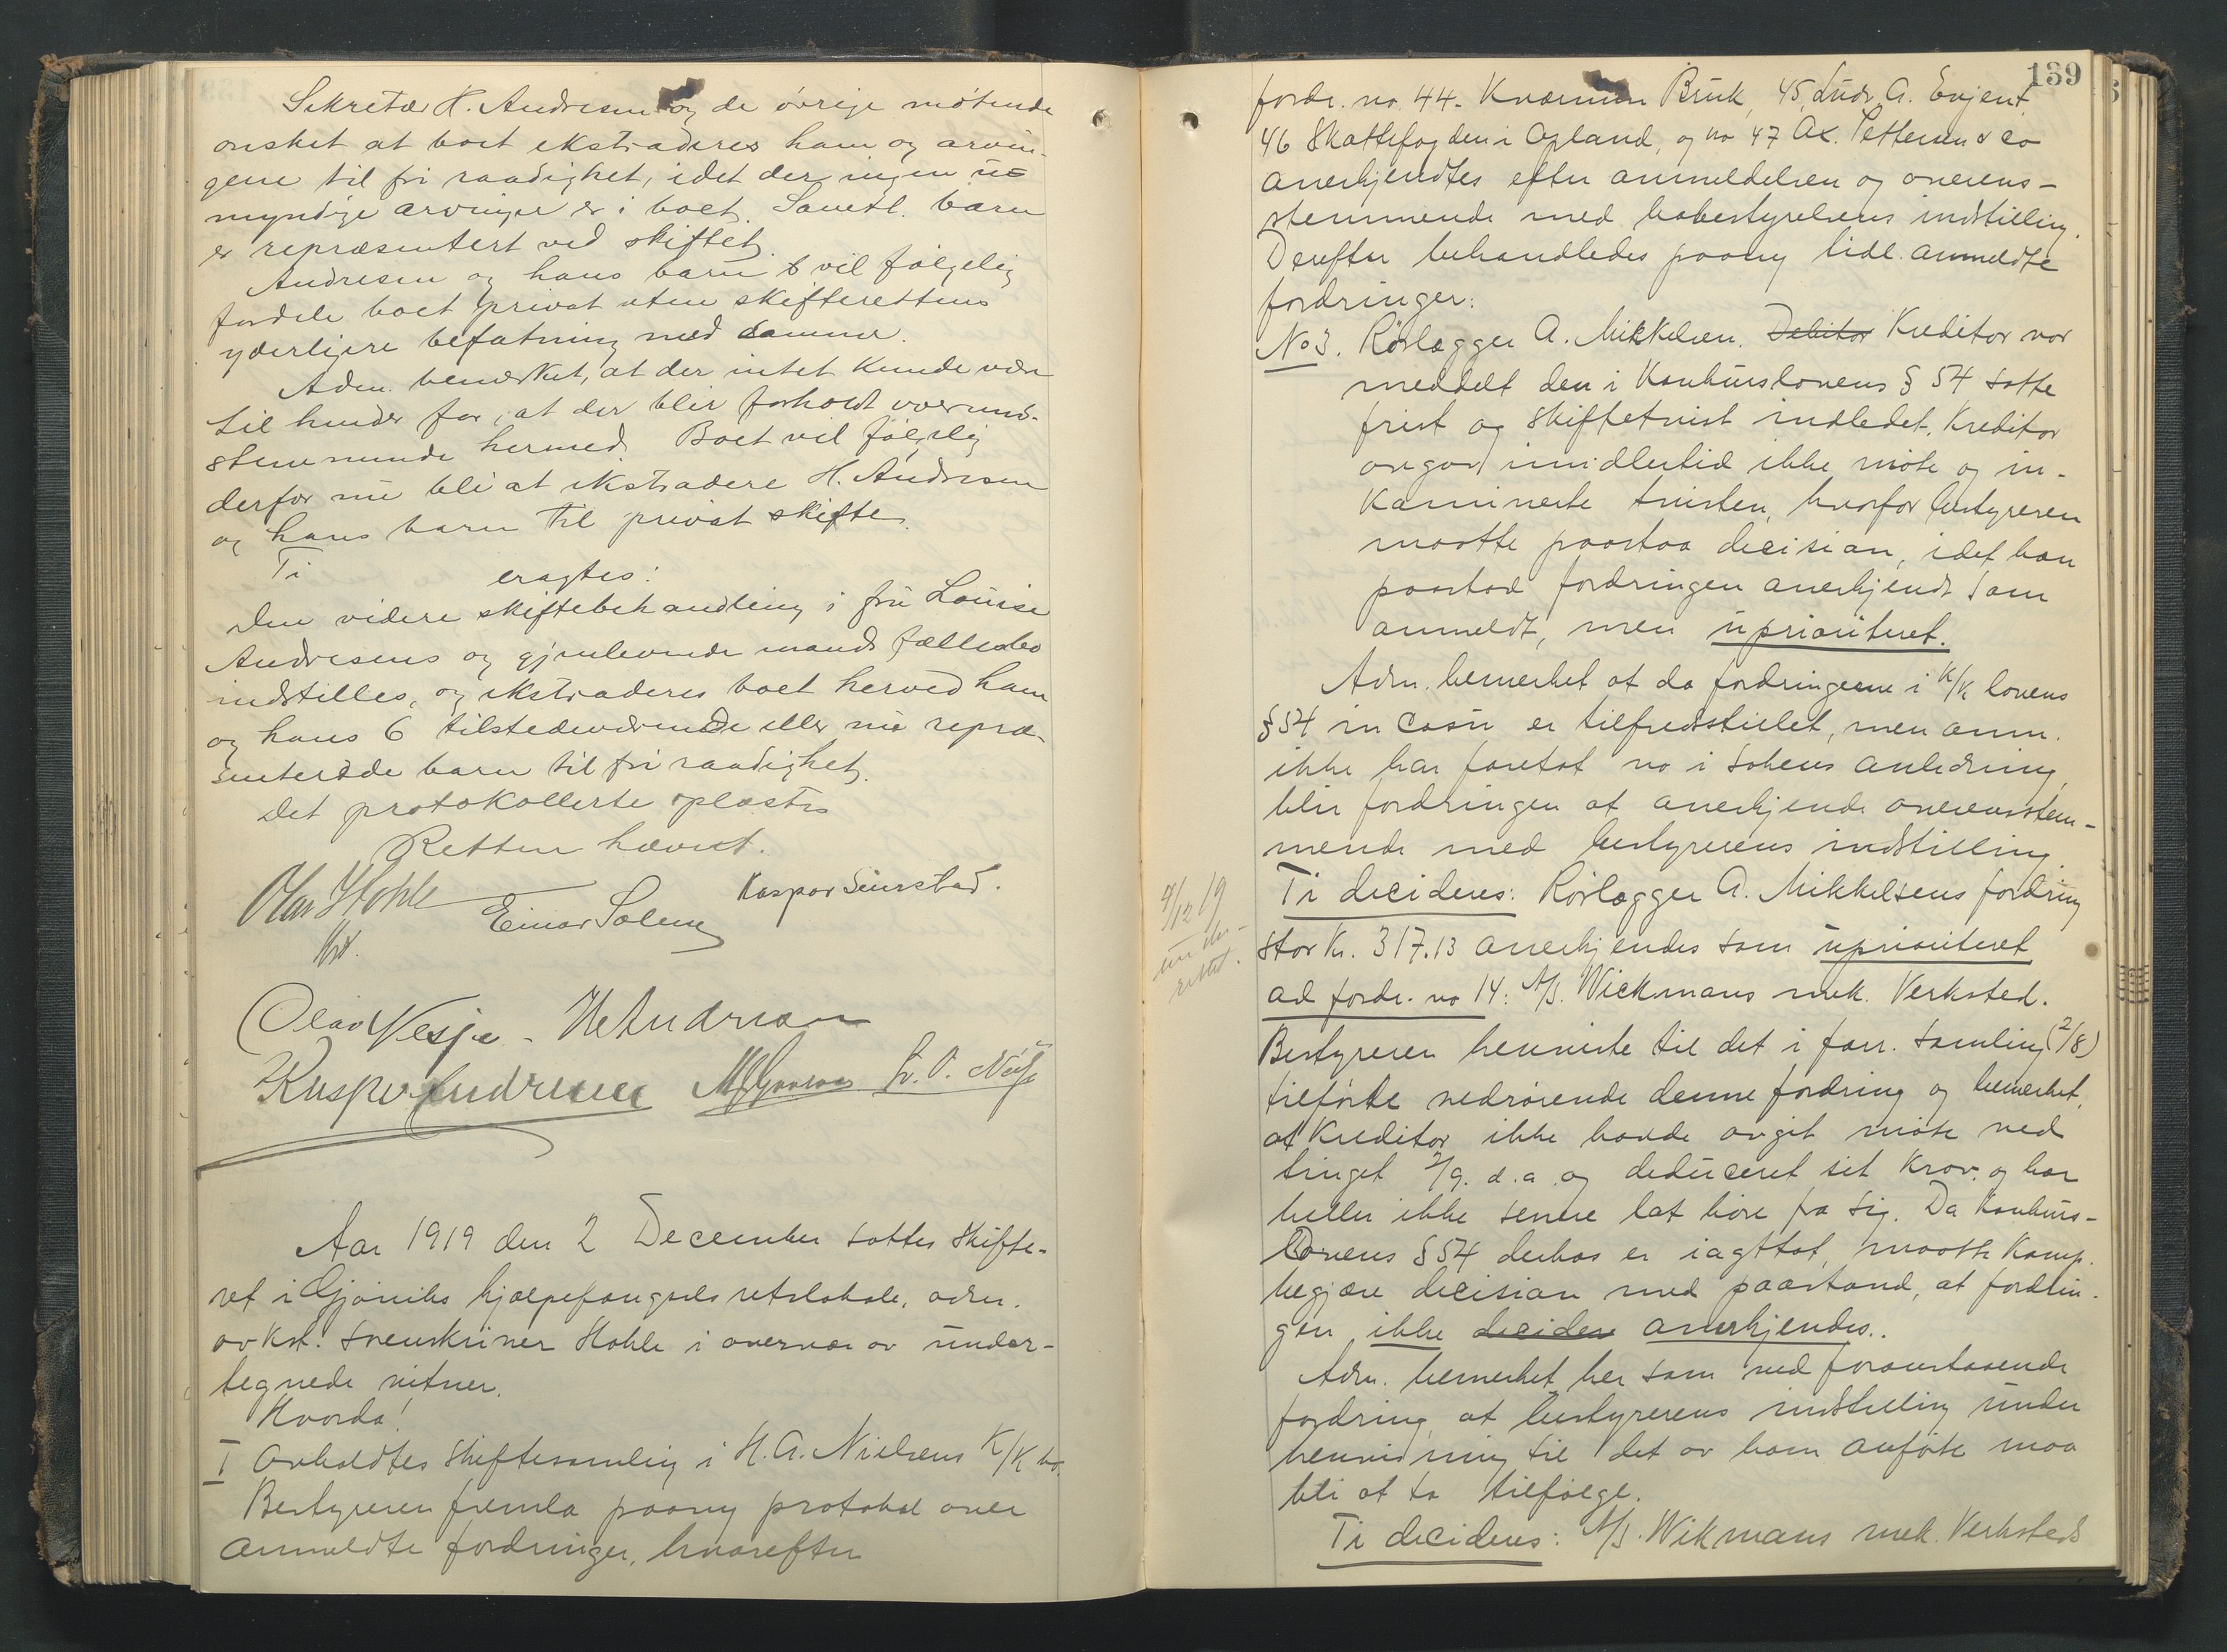 Sekretær H. Andresen og de øvrige møtende
ønsket at boet ekstraderes ham og arvin-
gene til fri raadighet, idet der ingen u-
myndige arvinger er i boet. Samtl. barn
er repræsentert ved skiftet.
Andresen og hans barn 6 vil følgelig
fordele boet privat uten skifterettens
yderligere befatning med samme.
Adm. bemerket, at der intet kunde være
til hinder for, at der blir forholdt overens-
stemmende hermed. Boet vil følgelig
derfor nu bli at ekstradere H. Andresen
og hans barn til privat skifte.
Ti eragtes:
Den videre skiftebehandling i fru Louise
Andresens og gjenlevende mands fællesbo
indstilles, og ekstraderes boet herved ham
og hans 6 tilstedeværende eller nu repræ-
senterede barn til fri raadighet.
Det protokollerte oplæstes
Retten hævet.
Olav Hohle
Kst.
Einar Solem
Kaspar Seierstad.
Olav Vesje. H Andresen
Kaspar Andresen
Aar 1919 den 2 December sattes skifte-
ret i Gjøviks hjælpefængsels retslokale, adm.
av kst. sorenskriver Hohle i overvær av under-
tegnede vitner.
Hvorda!
I Avholdtes skiftesamling i H. A. Nielsens K/K bo.
Bestyreren fremla paany protokol over
anmeldte fordringer, hvorefter
139
fordr. no. 44. Kværnum Bruk, 45, Ludv. A. Evjent
46 Skattefogden i Opland, og no 47 Ax. Pettersen & co
anerkjendtes efter anmeldelsen og overens-
stemmende med bobestyrelsens indstilling.
Derefter behandledes paany tidl. anmeldte
fordringer:
No 3. Rørlægger A. Mikkelsen. Debitor Kreditor var
meddelt den i Konkurslovens § 54 satte
frist og skiftetvist indledet. Kreditor
avgav imidlertid ikke møte og in-
kaminerte tvisten, hvorfor bestyreren
maatte paastaa decision, idet han
paastod fordringen anerkjendt som
anmeldt, men uprioriteret.
Adm. bemerket at da fordringerne i K/K lovens
§ 54 in casu er tilfredsstillet, men anm.
ikke har foretat no i sakens anledning,
blir fordringen at anerkjende overensstem-
mende med bestyrerens indstilling.
Ti decideres: Rørlægger A. Mikkelsens fordring
stor Kr. 317.13 anerkjendes som uprioriteret
4/12 19
under-
rettet.
ad fordr. no 14: A/S. Wickmans mek. Verksted.
Bestyreren henviste til det i forr. samling (2/8)
tilførte vedrørende denne fordring og bemerket,
at Kreditor ikke havde avgit møte ved
tinget 2/9. d.a. og deduceret sit krav. og har
heller ikke senere lat høre fra sig. Da Konkurs-
lovens § 54 derhos er iagttat, maatte Komp.
begjære decision med paastand, at fordrin-
gen ikke decidere anerkjendes.
Adm. bemerket her som ved foranstaaende
fordring at bestyrerens indstilling under
henvisning til det av ham anførte maa
bli at ta tilfølge.
Ti decideres: A/S. Wikmans mek. Verksteds